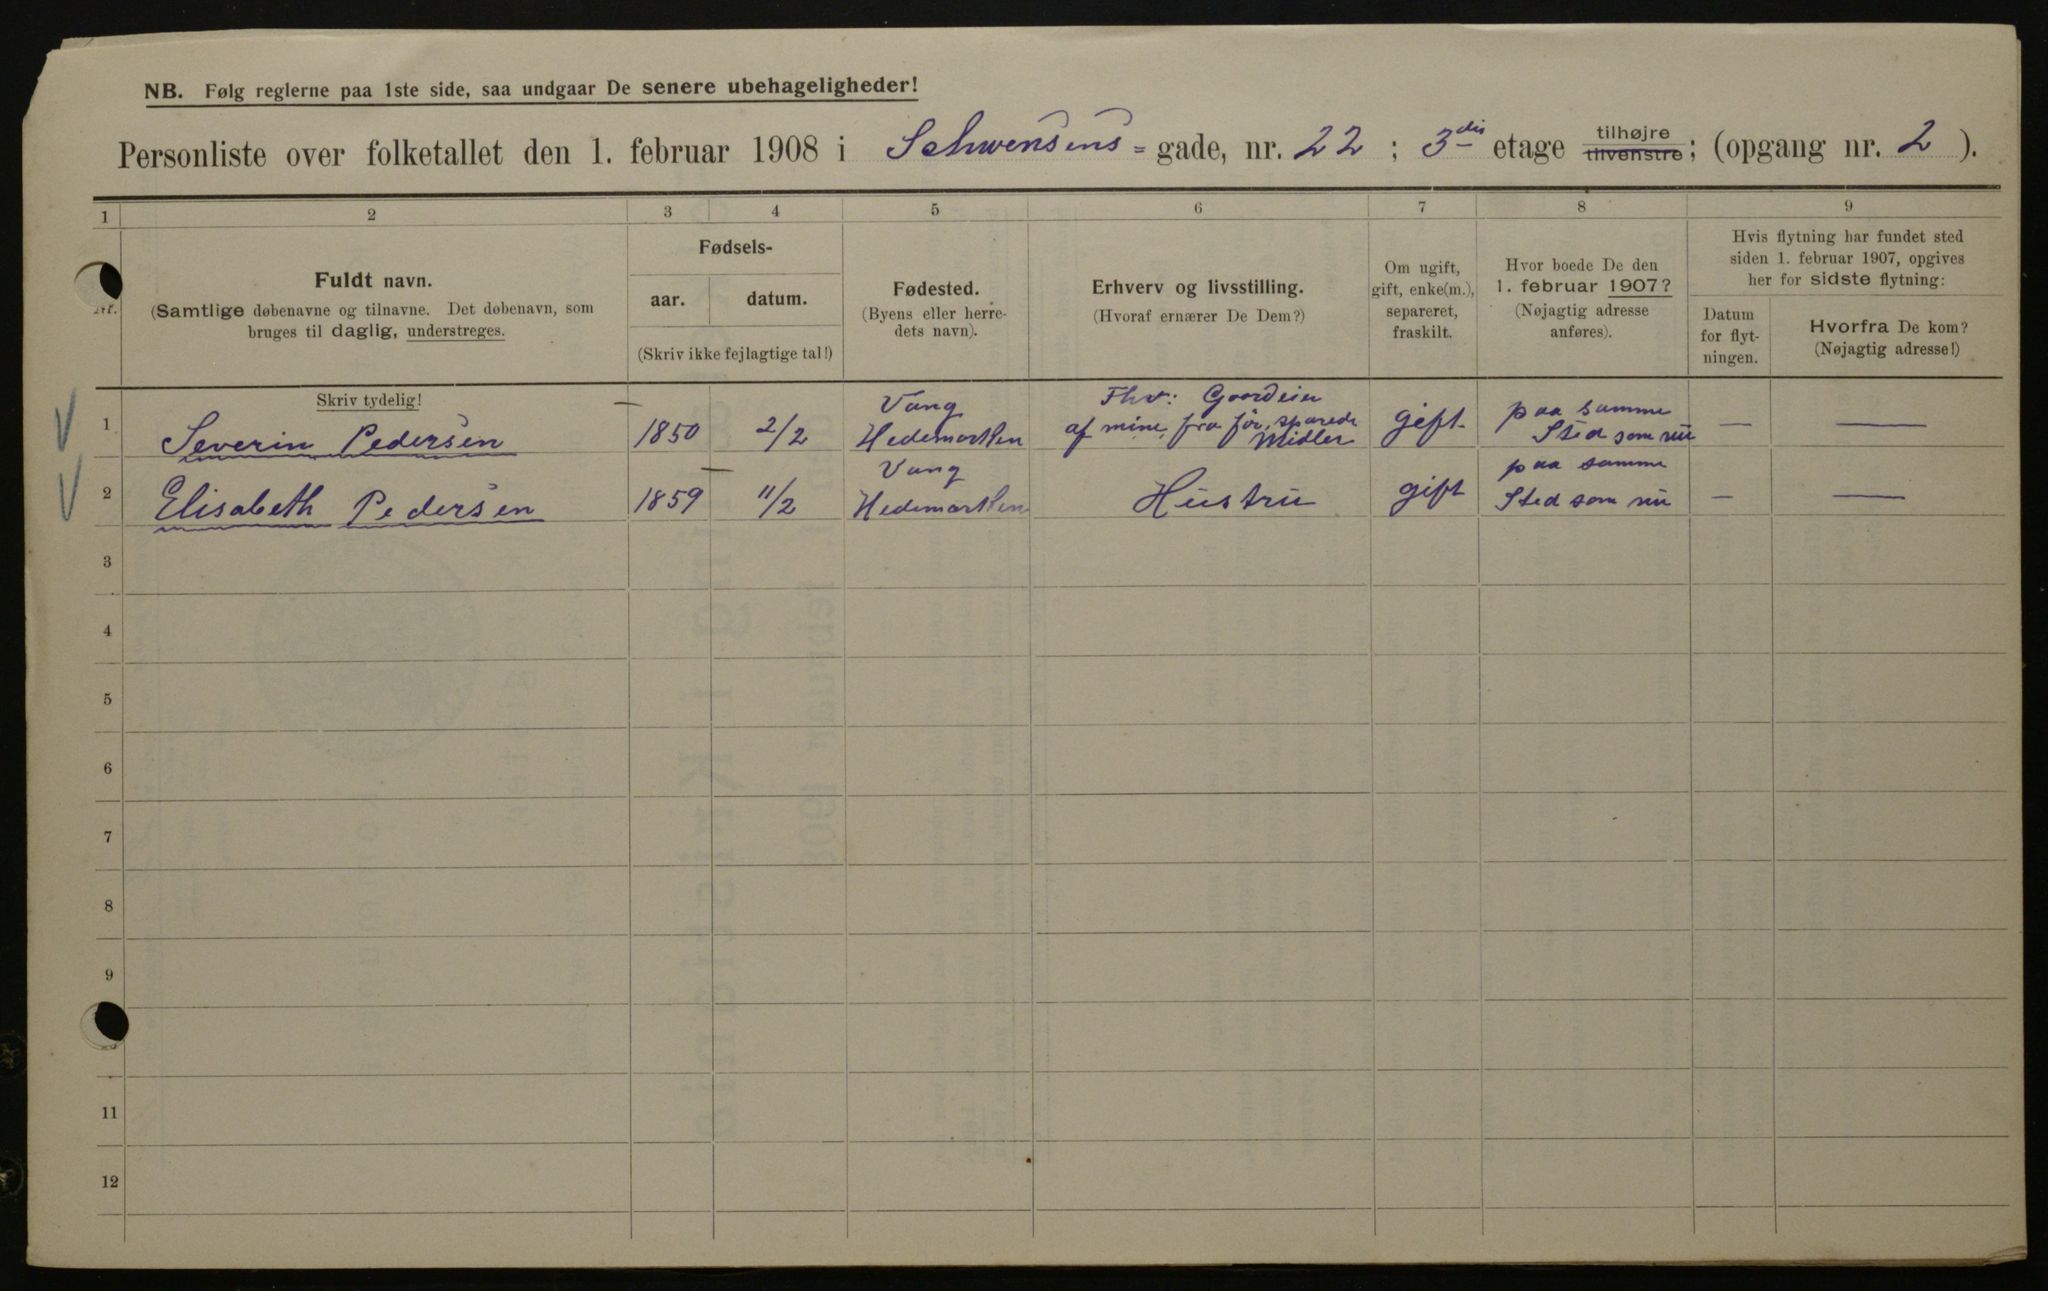 NB. Følg reglerne paa 1ste side, saa undgaar De senere ubehageligheder!
Personliste over folketallet den 1. februar 1908 i Schwensens=gade, nr. 22; 3die etage tilhøjre tilvenstre; (opgang nr. 2).
1 2 3 4 5 6 7 8 9
Nr.
Fuldt navn.
(Samtlige døbenavne og tilnavne. Det døbenavn, som
bruges til daglig, understreges.
Fødsels-
aar. datum.
(Skriv ikke fejlagtige tal!)
Fødested.
(Byens eller herre-
dets navn).
Erhverv og livsstilling.
(Hvoraf ernærer De Dem?)
Om ugift,
gift, enke(m.),
separeret,
fraskilt.
Hvor boede De den
1. februar 1907?
(Nøjagtig adresse
anføres).
Hvis flytning har fundet sted
siden 1. februar 1907, opgives
her for sidste flytning:
Datum
for flyt-
ningen.
Hvorfra De kom?
(Nøjagtig adresse!)
Skriv tydelig!
Vang Fhv: Gaardeier paa samme
1 Severin Pedersen 1850 2/2 Hedemarken af mine, fra før, sparede Midler gift Sted som nu — —
Vang paa samme
2 Elisabeth Pedersen 1859 11/2 Hedemarken Hustru gift Sted som nu — —
3
4
5
6
7
8
9
11
12